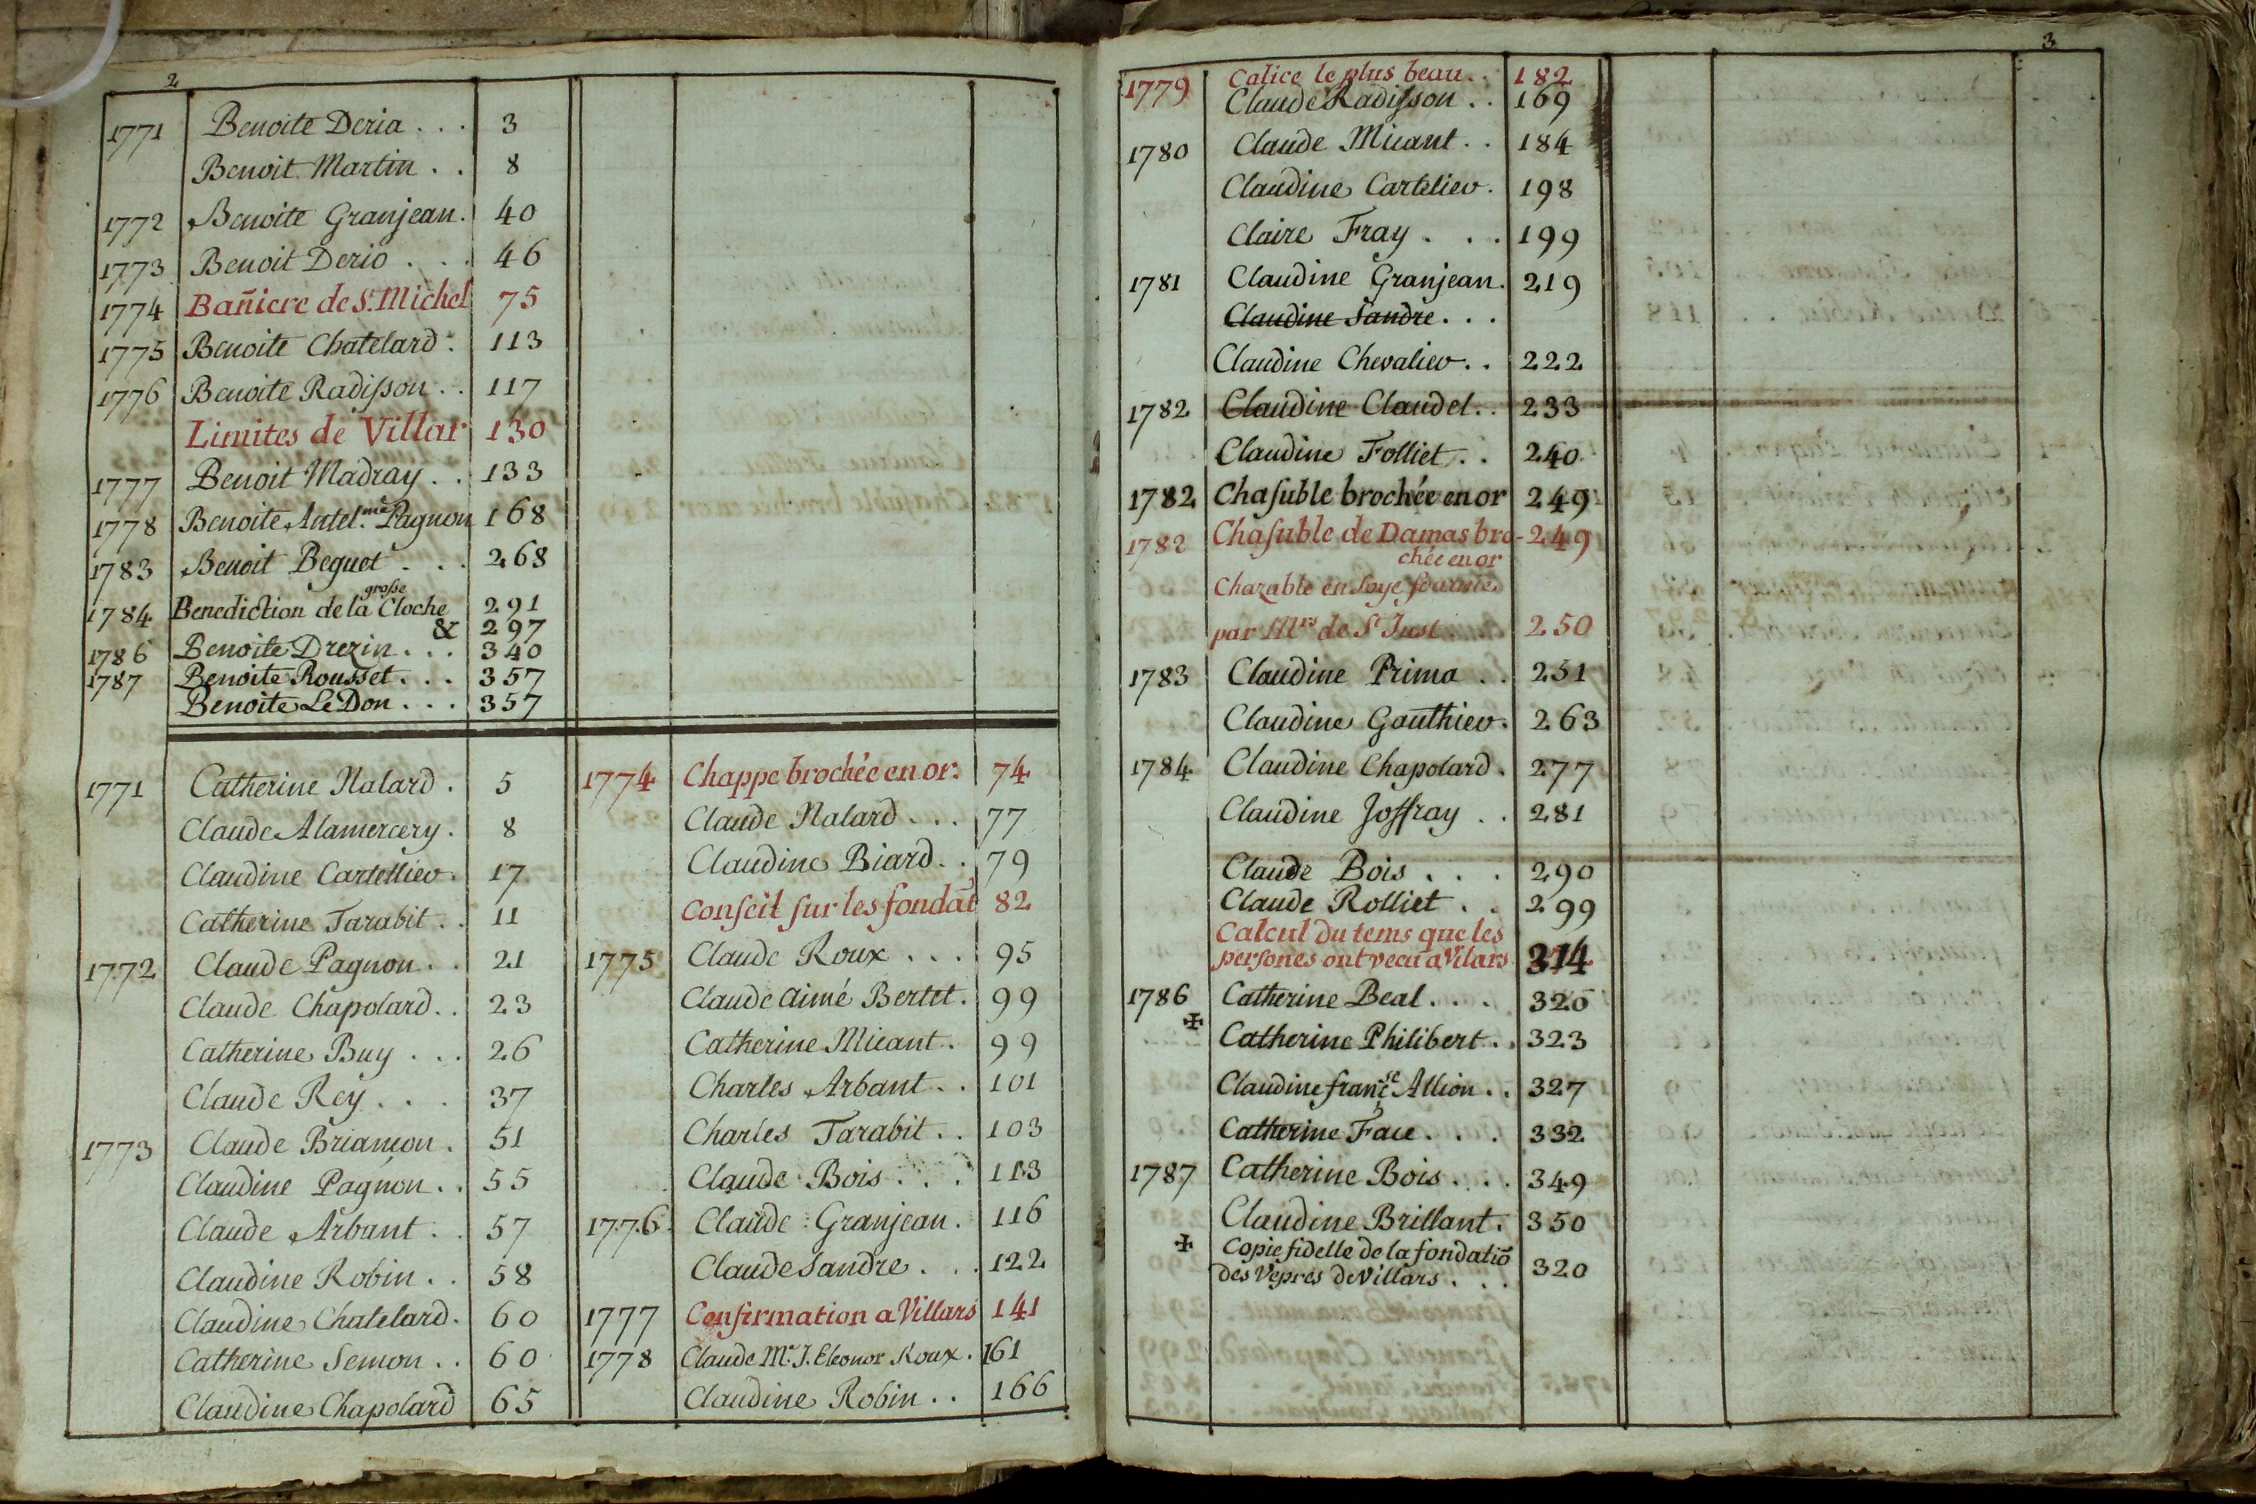 2
1771 Benoite Deria . . . 3
Benoit Martin . . 8
1772 Benoite Granjean . 40
1773 Benoit Derio . . . 46
1774 Bañiere de St. Michel 75
1775 Benoite Chatelard . 113
1776 Benoite Radisson . . 117
Limites de Villar 130
1777 Benoit Madray . . 133
1778 Benoite Antel.me Pagnon 168
1783 Benoit Beguet . . . 268
grosse
1784 Benediction de la Cloche 291
& 297
1786 Benoite Drezin . . . 340
1787 Benoite Rousset . . . 357
Benoite Le Don . . . 357
1771 Catherine Nalard . 5
Claude Alamercery . 8
Claudine Cartellier . 17
Catherine Tarabit . . 11
1772 Claude Pagnon . . 21
Claude Chapolard . . 23
Catherine Buy . . . 26
Claude Rey . . . 37
1773 Claude Briançon . 51
Claudine Pagnon . . 55
Claude Arbant . . 57
Claudine Robin . . 58
Claudine Chatelard . 60
Catherine Semon . . 60
Claudine Chapolard 65
1774 Chappe brochée en or . 74
Claude Nalard . . . 77
Claudine Biard . . 79
Conseil sur les fondat 82
1775 Claude Roux . . . 95
Claude aimé Bertet . 99
Catherine Micant . 99
Charles Arbant . . 101
Charles Tarabit . . 103
Claude Bois . . . 113
1776 Claude Granjean . 116
Claude Sandre . . . 122
1777 Confirmation a Villars 141
1778 Claude M.e J. Eleonor Roux . 161
Claudine Robin . . 166
3
1779 Calice le plus beau . . 182
Claude Radisson . . 169
1780 Claude Micant . . 184
Claudine Cartelier . 198
Claire Fray . . . 199
1781 Claudine Granjean . 219
Claudine Sandre . . .
Claudine Chevalier . . 222
1782 Claudine Claudel . . 233
Claudine Folliet . . 240
1782 Chasuble brochée en or 249
1782 Chasuble de Damas bro- 249
chée en or
Chazuble en soye fournie
par Mrs de St Just . . . 250
1783 Claudine Prima . . 251
Claudine Gauthier . 263
1784 Claudine Chapolard . 277
Claudine Joffray . . 281
Claude Bois . . . 290
Claude Rolliet . . 299
Calcul du tems que les
persones ont vecu a Vilars 314
1786 Catherine Beal . . . 320
✠ Catherine Philibert . . 323
Claudine franç.se Allion . . 327
Catherine Face . . . 332
1787 Catherine Bois . . . 349
Claudine Brillant . 350
✠ Copie fidelle de la fondatiõ
des Vepres de Villars . . . 320